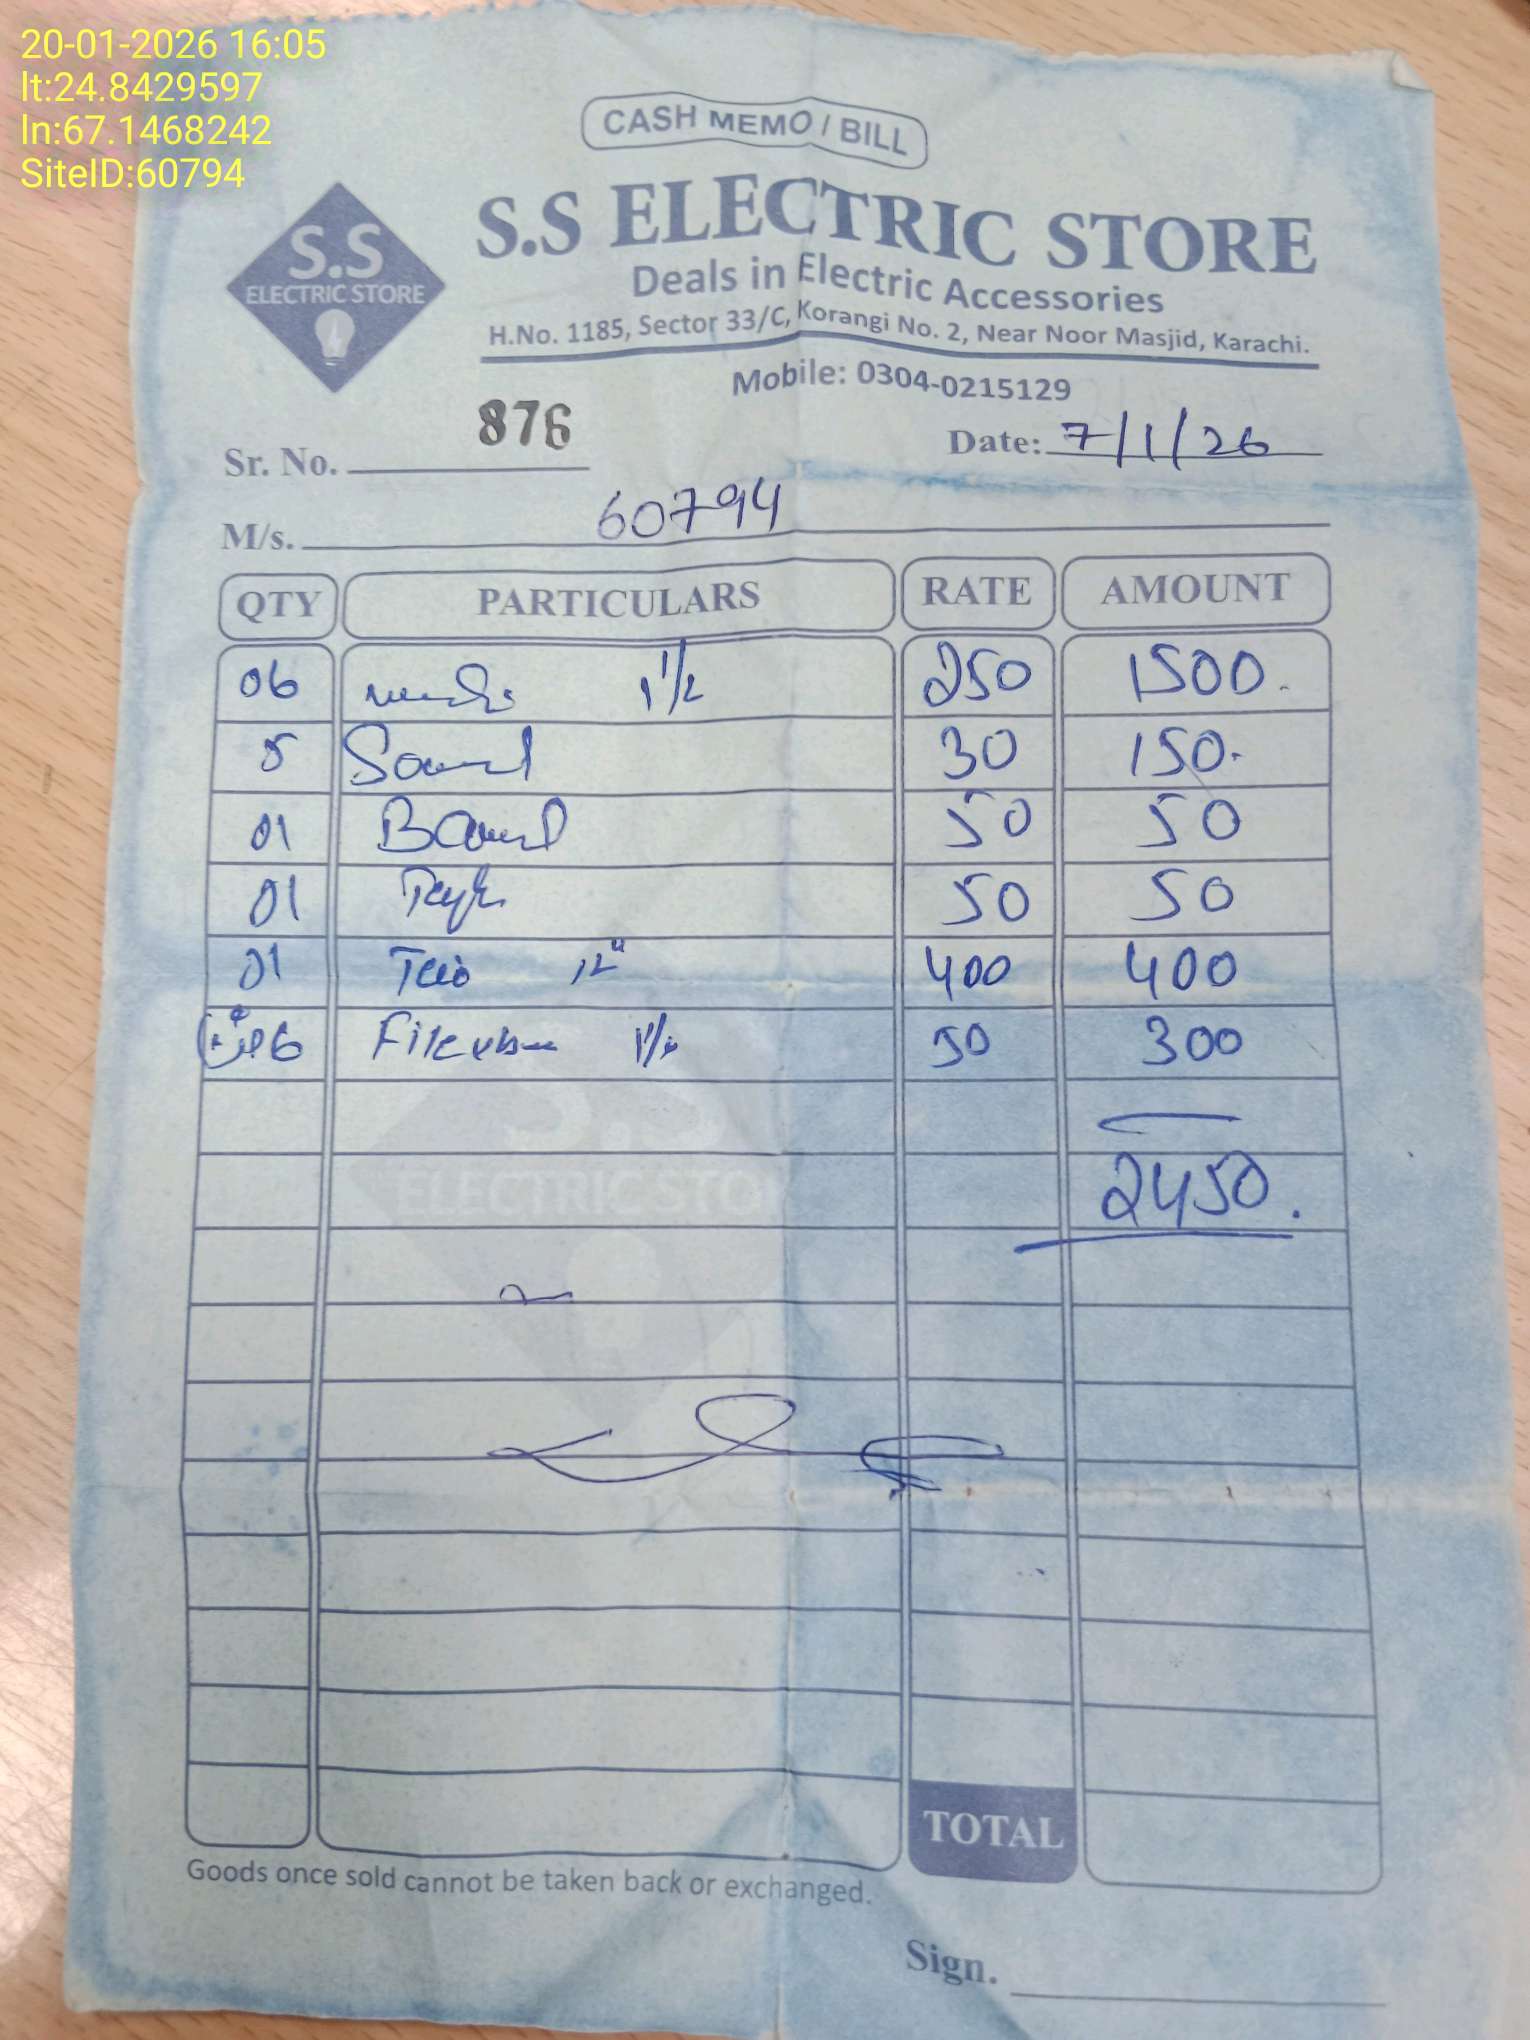 20-01-2026 16:05
lt:24.8429597
ln:67.1468242
SiteID:60794
CASH MEMO / BILL
S.S
ELECTRIC STORE
S.S ELECTRIC STORE
Deals in Electric Accessories
H.No. 1185, Sector 33/C, Korangi No. 2, Near Noor Masjid, Karachi.
Mobile: 0304-0215129
Sr. No. 876
Date: 7/1/26
M/s. 60794
QTY PARTICULARS RATE AMOUNT
06 1 1/2 250 1500.
5 30 150.
01 50 50
01 50 50
01 12" 400 400
6 50 300
2450.
ELECTRIC STO
TOTAL
Goods once sold cannot be taken back or exchanged.
Sign.